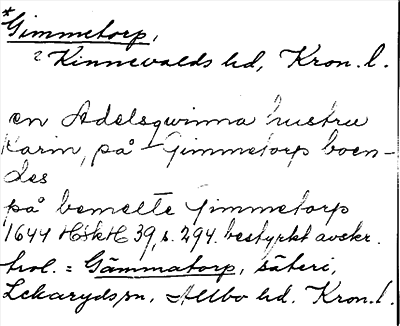 *Gimmetorp,
? Kinnevalds hd, Kron. l.
en Adelsqwinna hustru
Karin, på Gimmetorp boen-
des
på bemelte Gimmetorp
1644 HskH 39, s. 294. bestyrkt avskr.
trol. = Gåmmatorp, säteri,
Lekaryds sn, Allbo hd. Kron. l.